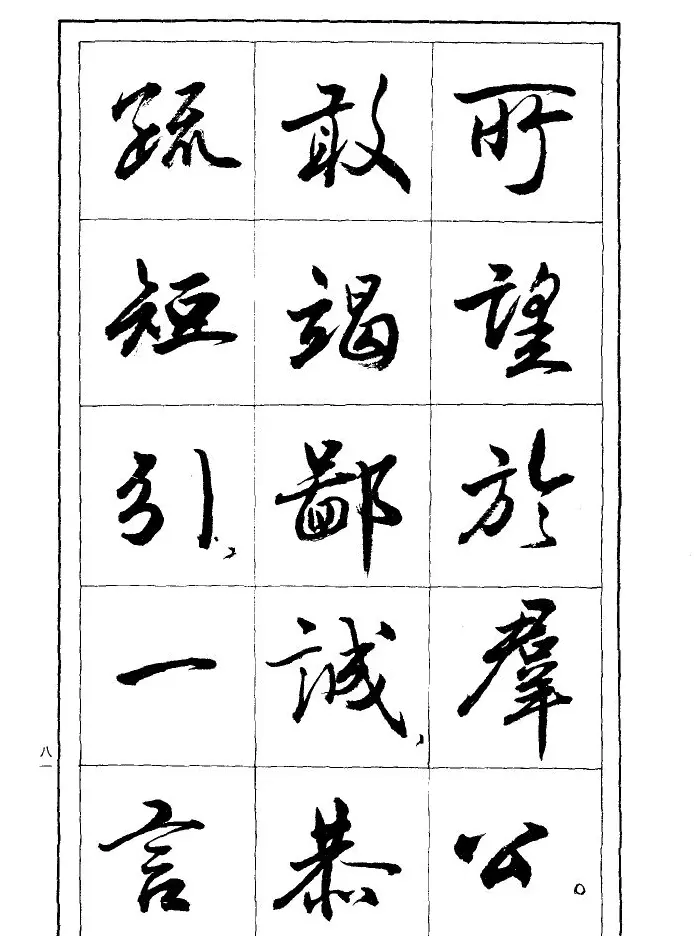 所望於羣公。
敢竭鄙誠，恭
疏短引，一言
八一